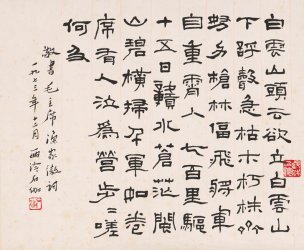 白雲山頭雲欲立白雲山
下呼聲急枯木朽株齊
努力槍林逼飛將軍
自重霄入七百里驅
十五日贛水蒼茫閩
山碧橫掃千軍如卷
席有人泣爲營步〻嗟
何及
敬書毛主席漁家傲詞
一九七三年十二月 西泠石伽